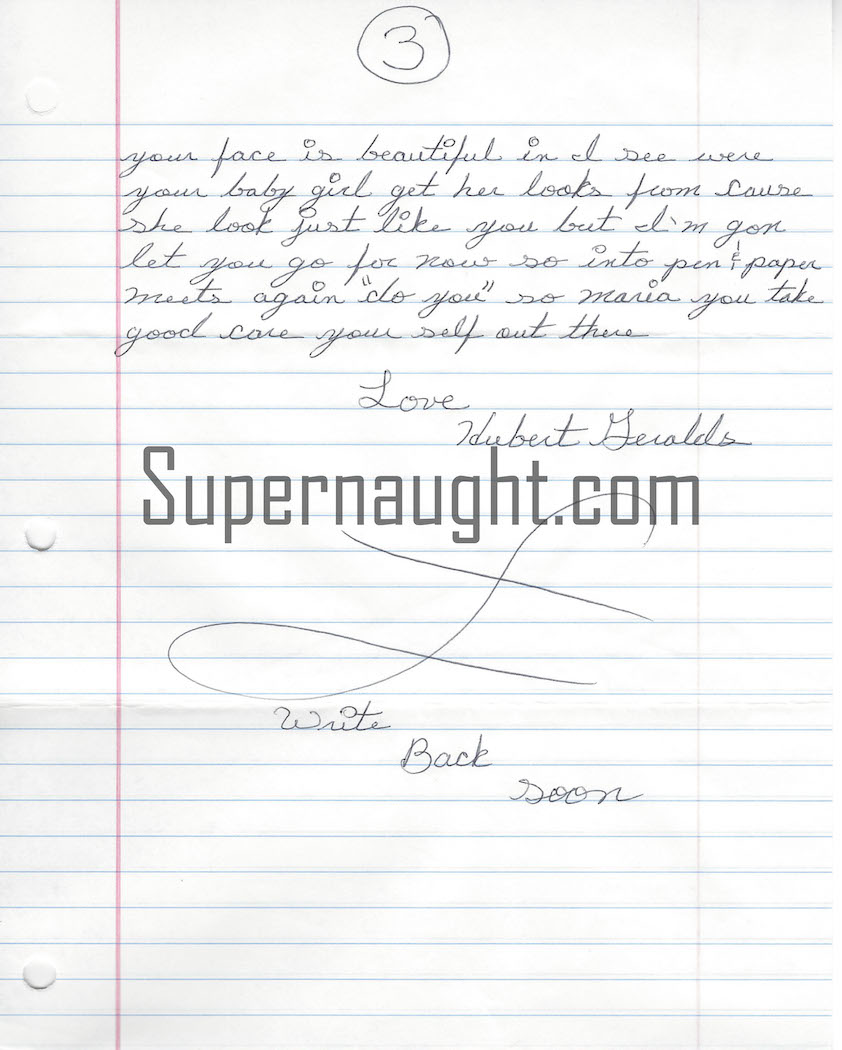 3
your face is beautiful in I see were
your baby girl get her looks from cause
she look just like you but I'm gon
let you go for now so into pen & paper
meets again "do you" so maria you take
good care your self out there
Love
Hubert Geralds
Supernaught.com
Write
Back
soon